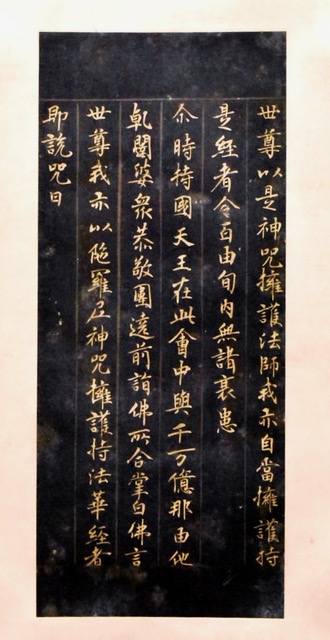 世尊以是神咒擁護法師我亦自當擁護持
是經者令百由旬內無諸衰患
尒時持國天王在此會中與千万億那由他
乹闥婆衆恭敬圍遶前詣佛所合掌白佛言
世尊我亦以陁羅尼神咒擁護持法華經者
即說咒曰